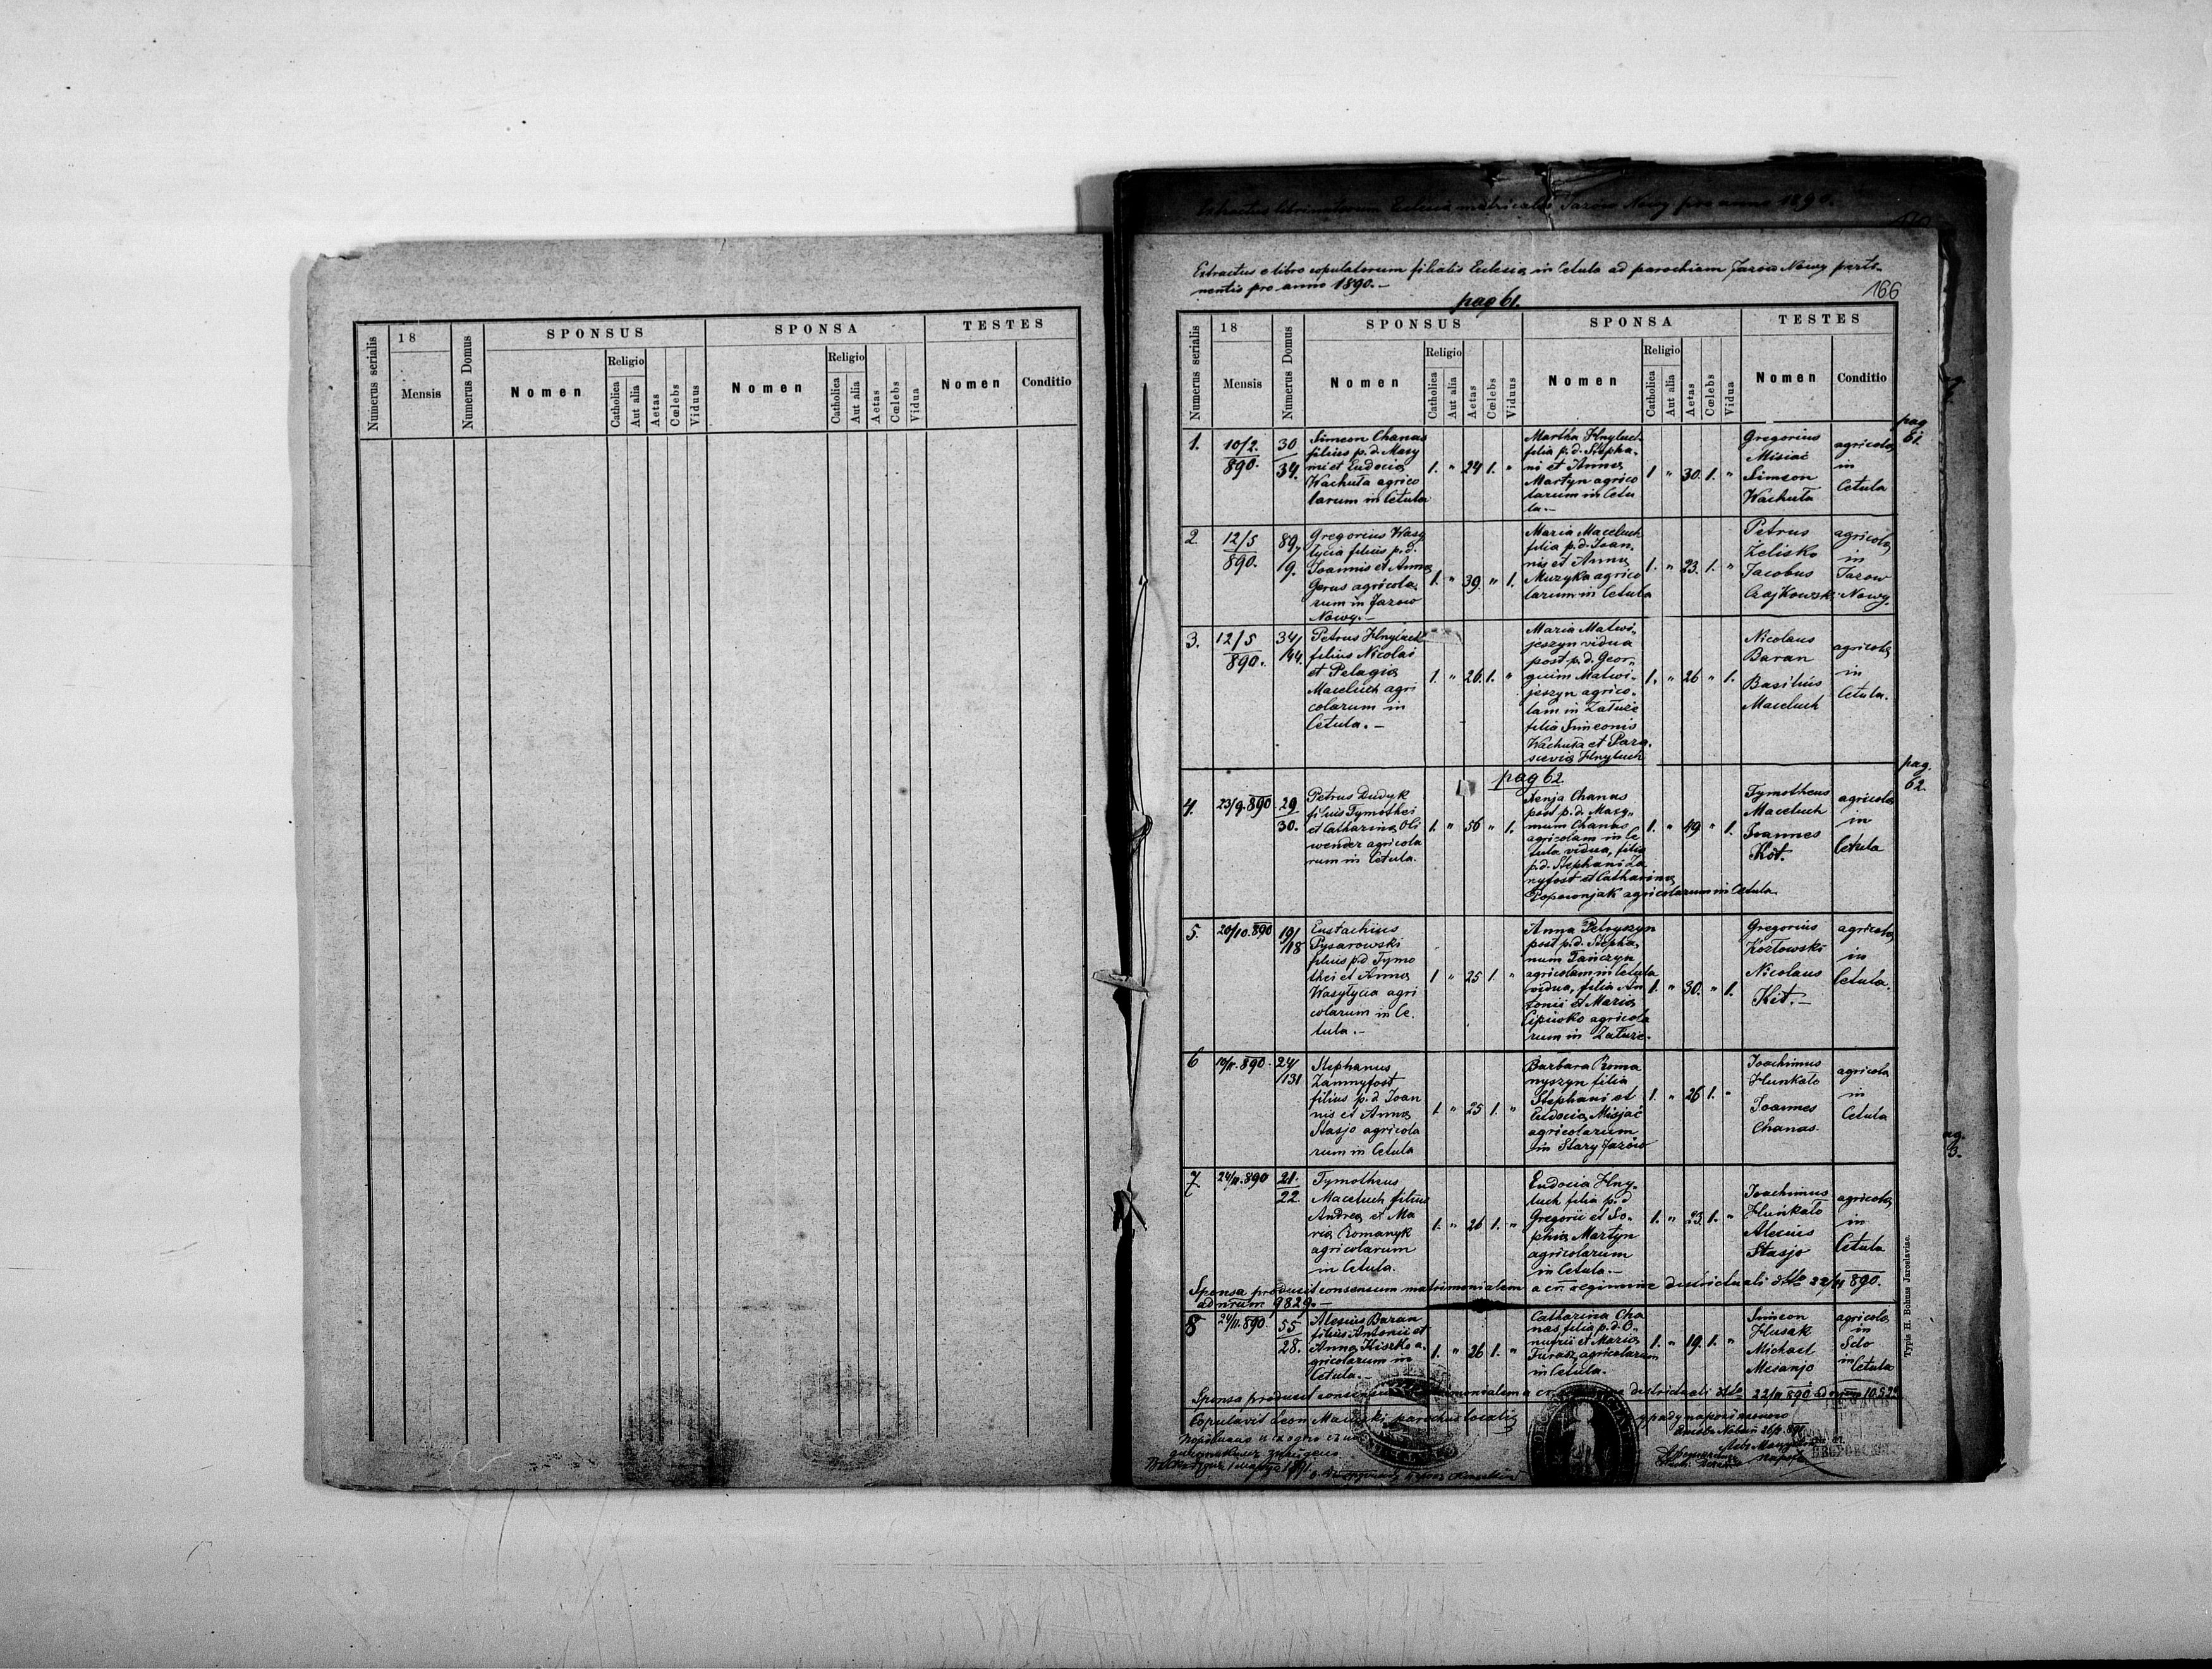 18
SPONSUS
SPONSA
TESTES
Numerus serialis
Mensis
Numerus Domus
Nomen
Religio
Catholica
Aut alia
Aetas
Cœlebs
Viduus
Nomen
Religio
Catholica
Aut alia
Aetas
Cœlebs
Vidua
Nomen
Conditio
Ecclesia Jazów Nowy pro anno 1890.
Extractus e libro copulatorum filialis Eclesia in Cetula ad parochiam Jazów Nowy perti-
nentis pro anno 1890.-
pag 61.
166
18
SPONSUS
SPONSA
TESTES
Numerus serialis
Mensis
Numerus Domus
Nomen
Religio
Catholica
Aut alia
Aetas
Cœlebs
Viduus
Nomen
Religio
Catholica
Aut alia
Aetas
Cœlebs
Vidua
Nomen
Conditio
pag
61.
1.
10/2.
890.
30
34.
Simeon Chanas
filius p.d. Maxy
mi et Eudocia
Wachuta agrico
larum in Cetula
1. " 24 1. "
Martha Hnyluch
filia p.d. Stepha-
ni et Anna
Martyn agrico
larum in Cetu
la.-
1 " 30. 1. "
Gregorius
Misiac
Simeon
Wachuta
agricola
in
Cetula
2.
12/5
890.
89
19.
Gregorius Wasy
lycia filius p.d.
Joannis et Anna
Gerus agricola
rum in Jazow
Nowy.-
1. " 39. " 1.
Maria Maceluch
filia p.d. Joan-
nis et Anna
Muzyka agrico
larum in Cetula
1. " 23. 1. "
Petrus
Zelisko
Jacobus
Czajkowski
agricola
in
Jazow
Nowy.
3.
12/5
890.
34/
144.
Petrus Hnyluch
filius Nicolai
et Pelagia
Maceluch agri
colarum in
Cetula.-
1. " 26. 1. "
Maria Matwi-
jeszyn vidua
post p.d. Geor-
gium Matwi-
jeszyn agrico-
lam in Załuże
filia Simeonis
Wachuta et Para-
scevia Hnyluch
1. " 26 " 1.
Nicolaus
Baran
Basilius
Maceluch
agricola
in
Cetula.
pag 62.
pag.
62.
4.
23/9.890
29
30.
Petrus Dudyk
filius Tymothei
et Catharina Oli
wender agricola
rum in Cetula.
1. " 56 " 1.
Xenja Chanas
post p.d. Maxy-
mum Chanas
agricolam in Ce
tula vidua, filia
p.d. Stephani Za
nyfost et Catharina
Popownjak agricolarum in Cetula
1. " 49 " 1.
Tymotheus
Maceluch
Joannes
Kot.
agricola
in
Cetula
5.
20/10.890
19/
118
Eustachius
Pysarowski
filius p.d Tymo
thei et Anna
Wasylycia agri
colarum in Ce-
tula.-
1 " 25 1. "
Anna Petryszyn
post p.d. Stepha
num Pańczyn
agricolam in Cetula
vidua, filia An
tonii et Maria
agricola
rum in Załuże.
1. " 30. " 1.
Gregorius
Kozłowski
Nicolaus
Kit.-
agricola
in
Cetula.
6
10/11.890.
24/
131
Stephanus
Zamnyfost
filius p.d Joan
nis et Anna
Stasjo agricola
rum in Cetula
1. " 25 1. "
Barbara Roma
nyszyn filia
Stephani et
Eudocia Misjać
agricolarum
in Stary Jazów
1. " 26 1. "
Joachimus
Hunkało
Joannes
Chanas.
agricola
in
Cetula
7
24/11.890
21.
22.
Tymotheus
Maceluch filius
Andrea et Ma
ria Romanyk
agricolarum
in Cetula.
1. " 26 1. "
Eudocia Hny-
luch filia p.d
Gregorii et So-
phia Martyn
agricolarum
in Cetula.-
1. " 23. 1. "
Joachimus
Hunkało
Alexius
Stasjo
agricola
in
Cetula
Sponsa produxit consensum matrimonialem a cr. regimine districtuali dtto 22/11 890.
ad nrum 9829.-
8
24/11.890.
55
28.
Alexius Baran
filius Antonii et
Anna Kiszko a-
gricolarum in
Cetula.-
1. " 26 1. "
Catharina Cha
nas filia p.d. O-
nufrii et Maria
Furasz agricolarum
in Cetula.
1. " 19. 1. "
Simeon
Husak
Michael
Mesanjo
agricola
in
Selo
in Cetula
Sponsa produxit districtuali dtto 22/11 890
Copulavit Leon parochus localis
Typis H. Bohuss Jaroslaviae.